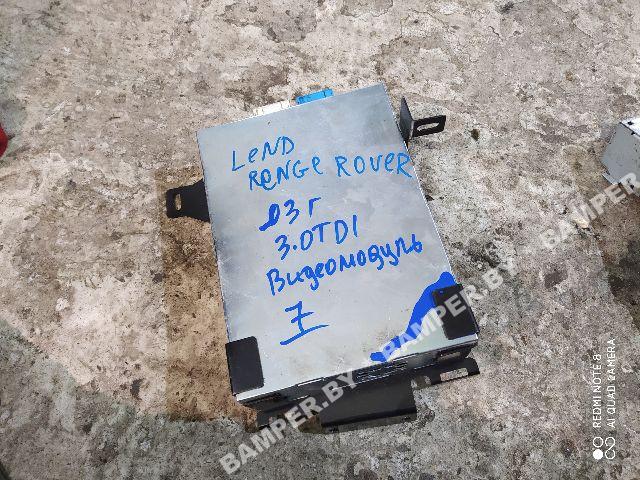 LeND
RENGE ROVER
03г
3.0TDI
Видеомодуль
7
BAMPER.BY - BAMPER.BY - BAMPER.BY
REDMI NOTE 8
AI QUAD CAMERA